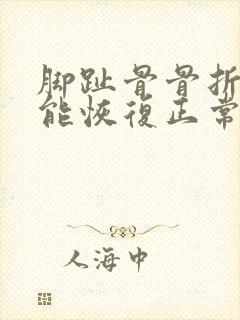 脚趾骨骨折
能恢復正常
人海中